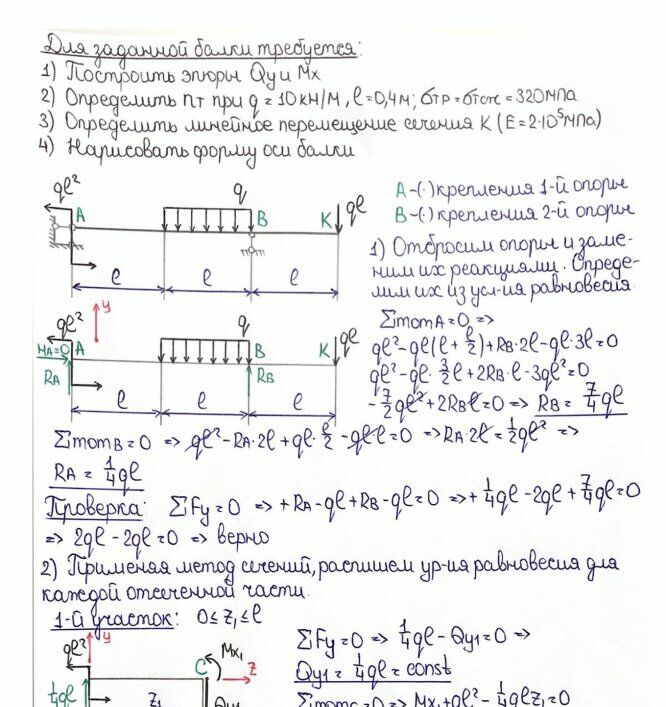 Для заданной балки требуется:
1) Построить эпюры Qy и Mx
2) Определить nт при q = 10 кН/м, ℓ = 0,4м; σтр = σтсж = 320МПа
3) Определить линейное перемещение сечения K (E = 2·10⁵МПа)
4) Нарисовать форму оси балки
qℓ² A q B K qℓ
ℓ ℓ ℓ
A-(·) крепления 1-й опоры
B-(·) крепления 2-й опоры
1) Отбросим опоры и заме-
ним их реакциями. Опреде-
лим их из усл-ия равновесия.
y
qℓ² q qℓ
HA=0 A B K
RA RB
ℓ ℓ ℓ
ΣmomA=0 =>
qℓ²-qℓ(ℓ+ℓ/2)+RB·2ℓ-qℓ·3ℓ=0
qℓ²-qℓ·3/2ℓ+2RB·ℓ-3qℓ²=0
-7/2qℓ²+2RBℓ=0 => RB = 7/4qℓ
ΣmomB=0 => qℓ²-RA·2ℓ+qℓ·ℓ/2-qℓ·ℓ=0 => RA·2ℓ=1/2qℓ² =>
RA = 1/4qℓ
Проверка: ΣFy=0 => +RA-qℓ+RB-qℓ=0 => +1/4qℓ-2qℓ+7/4qℓ=0
=> 2qℓ-2qℓ=0 => верно
2) Применяя метод сечений, распишем ур-ия равновесия для
каждой отсеченной части.
1-й участок: 0≤z₁≤ℓ
qℓ² y C Mx₁ z
1/4qℓ z₁ Qy1
ΣFy=0 => 1/4qℓ-Qy1=0 =>
Qy1 = 1/4qℓ = const
Σmomc=0 => Mx₁+qℓ²-1/4qℓz₁=0